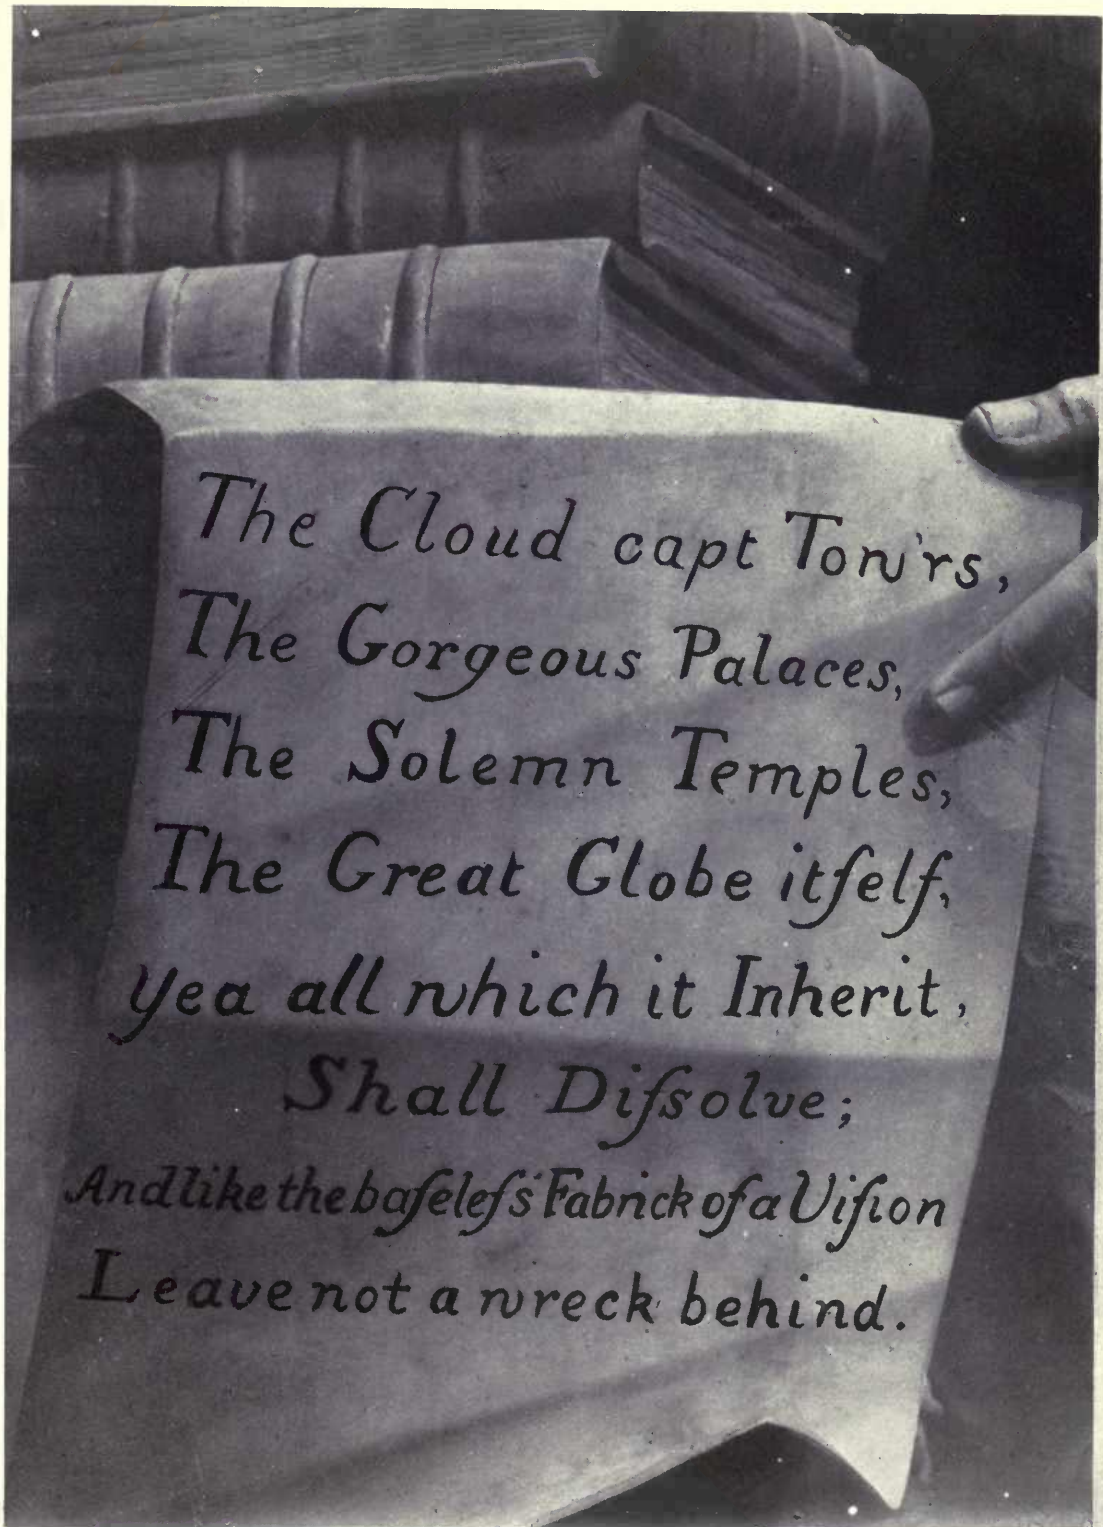 The Cloud capt Tow'rs,
The Gorgeous Palaces,
The Solemn Temples,
The Great Globe itſelf,
yea all which it Inherit,
Shall Diſsolve;
And like the baſeleſs Fabrick of a Viſion
Leave not a wreck behind.